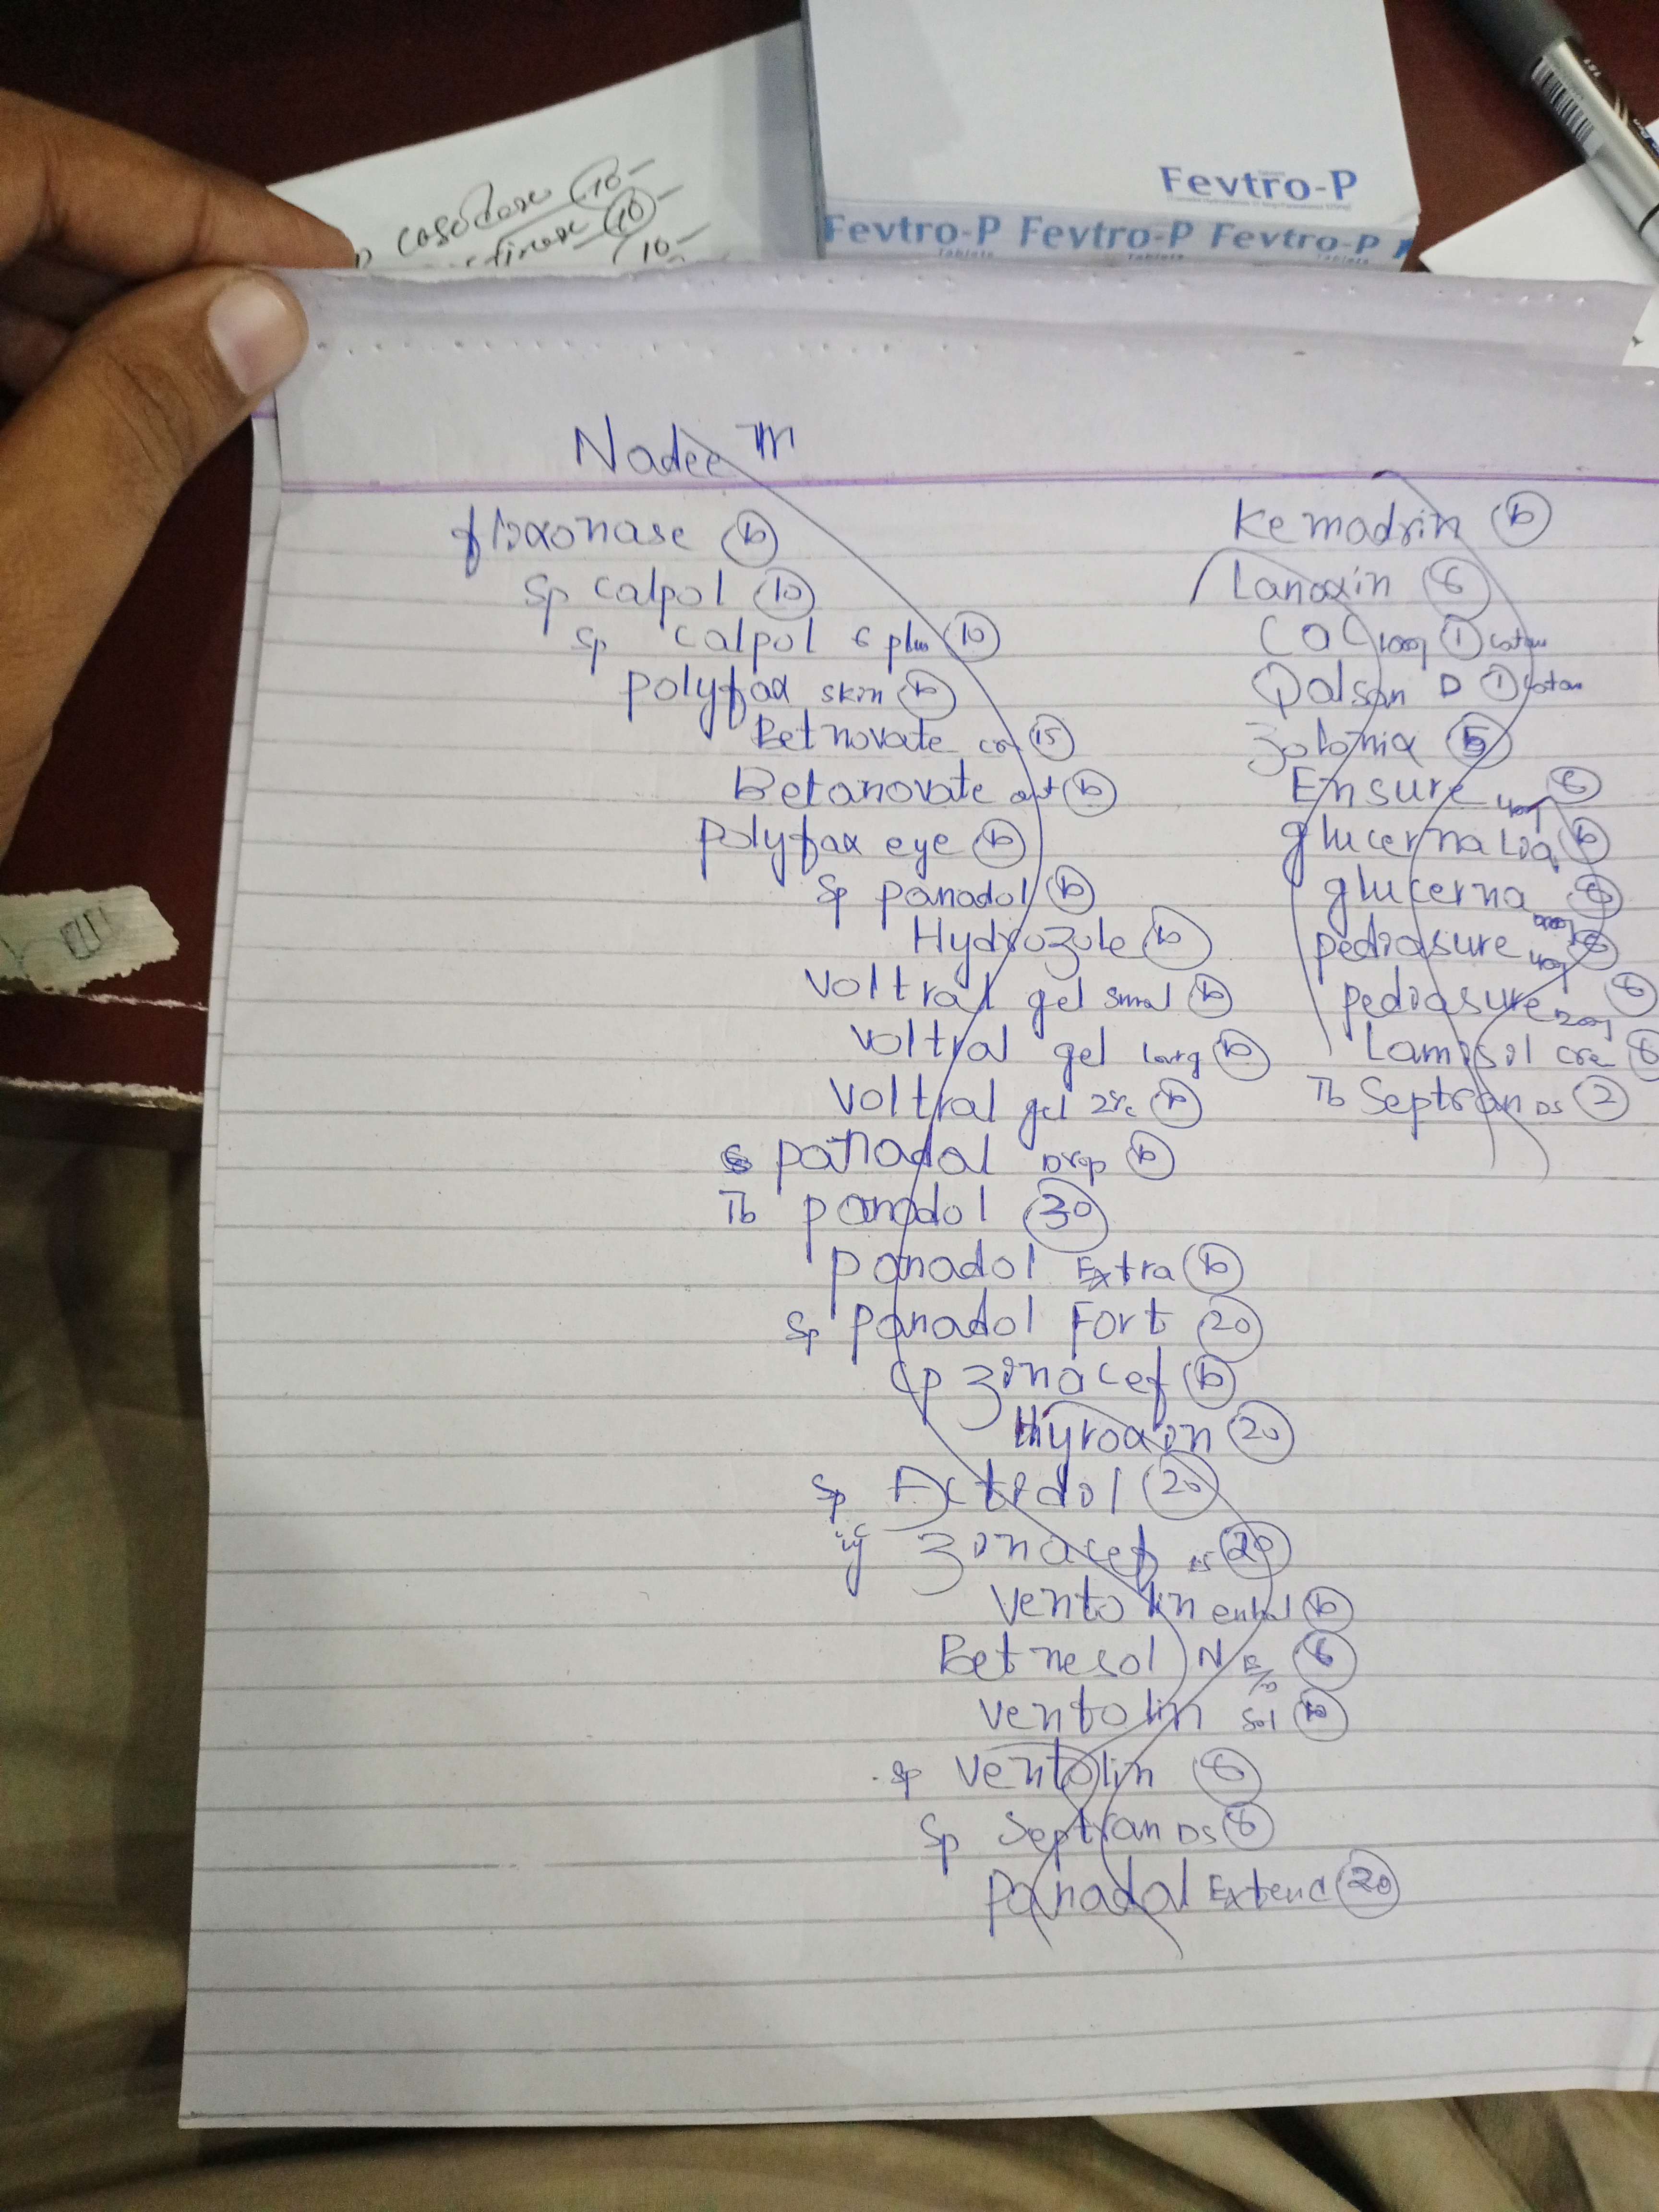 Fevtro-P
Fevtro-P Fevtro-P Fevtro-P
Tablets Tablets Tablets
10
10
10
Nadeem
flixonase 10
Sp calpol 10
Sp calpol 6 plus 10
polyfax skin 10
Betnovate cre 15
Betanovate ont 10
polyfax eye 10
Sp panadol 10
Hydrozole 10
Voltral gel smal 10
Voltral gel Larg 10
Voltral gel 2% 10
panadol Drop 10
Tb panadol 30
panadol Extra 10
Sp panadol Fort 20
Cp zinacef 10
thyroxin 20
Sp Actedol 20
ij zinacef 20
Ventolin enhal 10
Betnesol N E/D 6
Ventolin Sol 10
Sp Ventolin 6
Sp Septran DS 6
Panadal Extend 20
Kemadrin 10
Lanoxin 6
CaC 1000 1 Cotan
Qalsan D 1 Cotan
Zolonix 5
Ensure 400g 6
glucerna Liq 10
glucerna 6
pediasure 400g 6
pediasure 6
Lamisil cre 6
Tb Septran DS 2